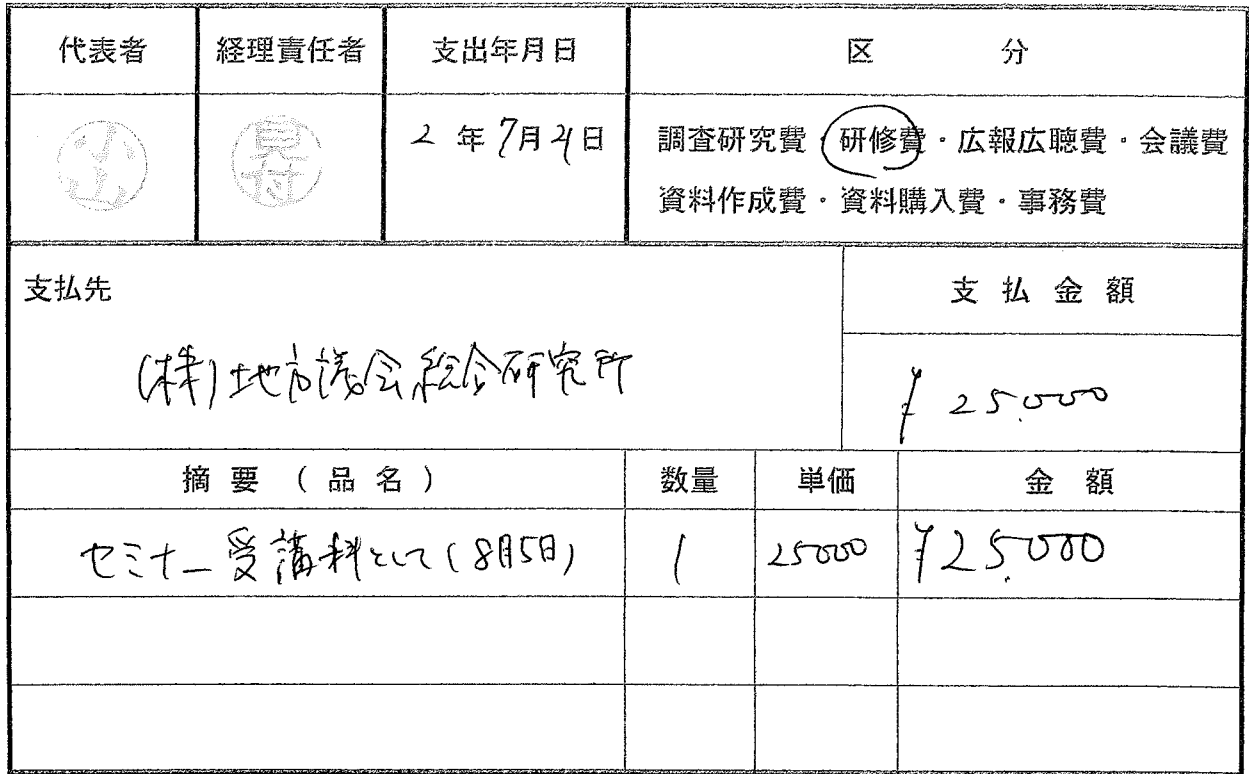 代表者 経理責任者 支出年月日 区 分
小山 見付 2 年 7月21日 調査研究費・研修費・広報広聴費・会議費
資料作成費・資料購入費・事務費
支払先 支 払 金 額
(株)地方議会総合研究所 ¥25,000
摘 要 ( 品 名 ) 数量 単価 金 額
セミナー受講料として(8月5日) 1 25000 ¥25,000